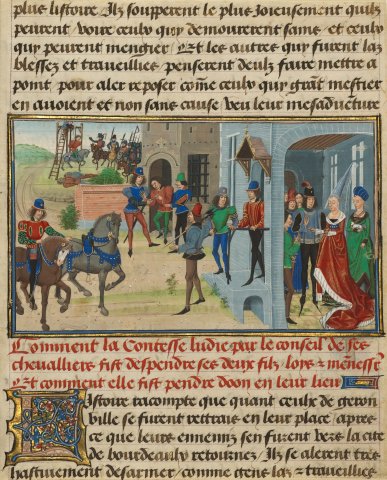 plus listoire Ilz soupperent le plus joieusement quilz
peurent voire ceulx quy demourerent sains et ceulx
quy peurent mengier / Et les autres quy furent las
blessez et traveilliez penserent deulx faire mettre a
point pour aler reposer come ceulx quy grāt mestier
en avoient et non sans cause Veu leur mesaduēture
Comment la Contesse ludie par le conseil de ses
chevalliers fist despendre ses deux filz loys z mēnesse
Et comment elle fist pendre doon en leur lieu
Istoire racompte que quant ceulx de geron
ville se furent rettrais en leur place apres
ce que leurs ennemis sen furent vers la cite
de bourdeaulx retournez / Ilz se alerent tres
hastivement desarmer / comme gens las z travelliez